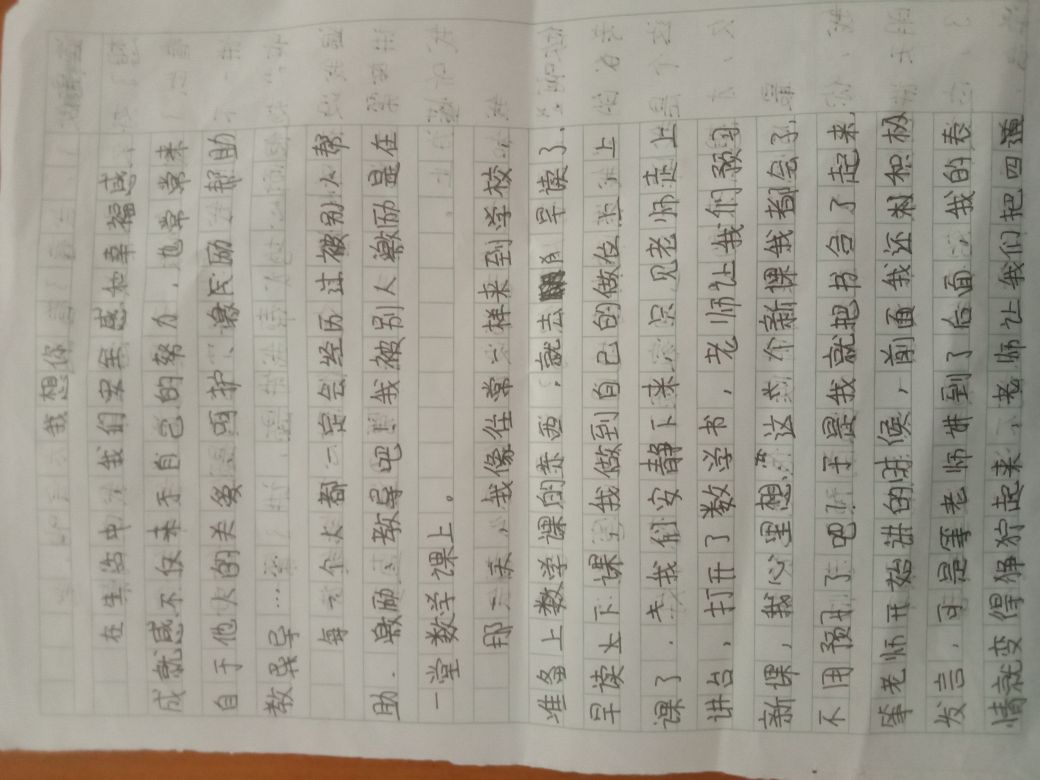 我想你
在生活中,我们安全感和幸福感、
成就感不仅来于自己的努力,也常常来
自于他人的关爱、呵护、激励、帮助
教导……
每一个人都一定会经历过被别人帮
助、激励、教导吧!我被别人激励是在
一堂数学课上。
那一天,我像往常一样来到学校,
准备上数学课的东西,就去早读了,
早读上下课,我做到自己的做位上,上
课了,我们安静下来,只见老师走上
讲台,打开了数学书,老师让我们预习
新课,我心里想:这个新课我都会了,
不用预习了吧!于是我就把书合了起来
等老师开始讲的时候,前面我还积极
发言,可是等老师讲到了后面,我的表
情就变得狰狞起来,老师让我们把四道